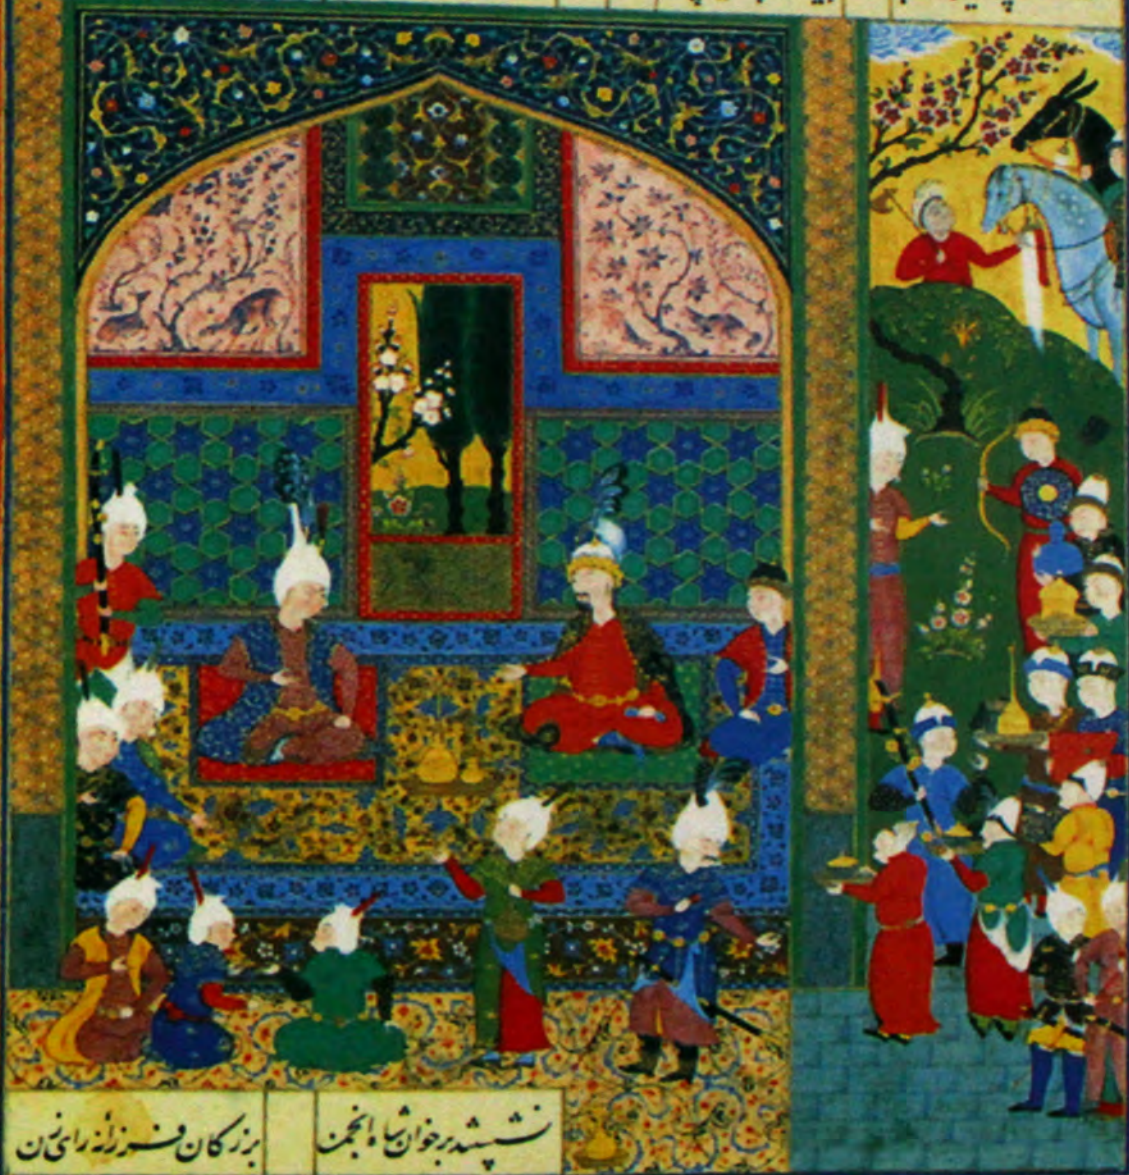 نشستند برخوان شاه انجمن بزرکان فرزانه رای زن